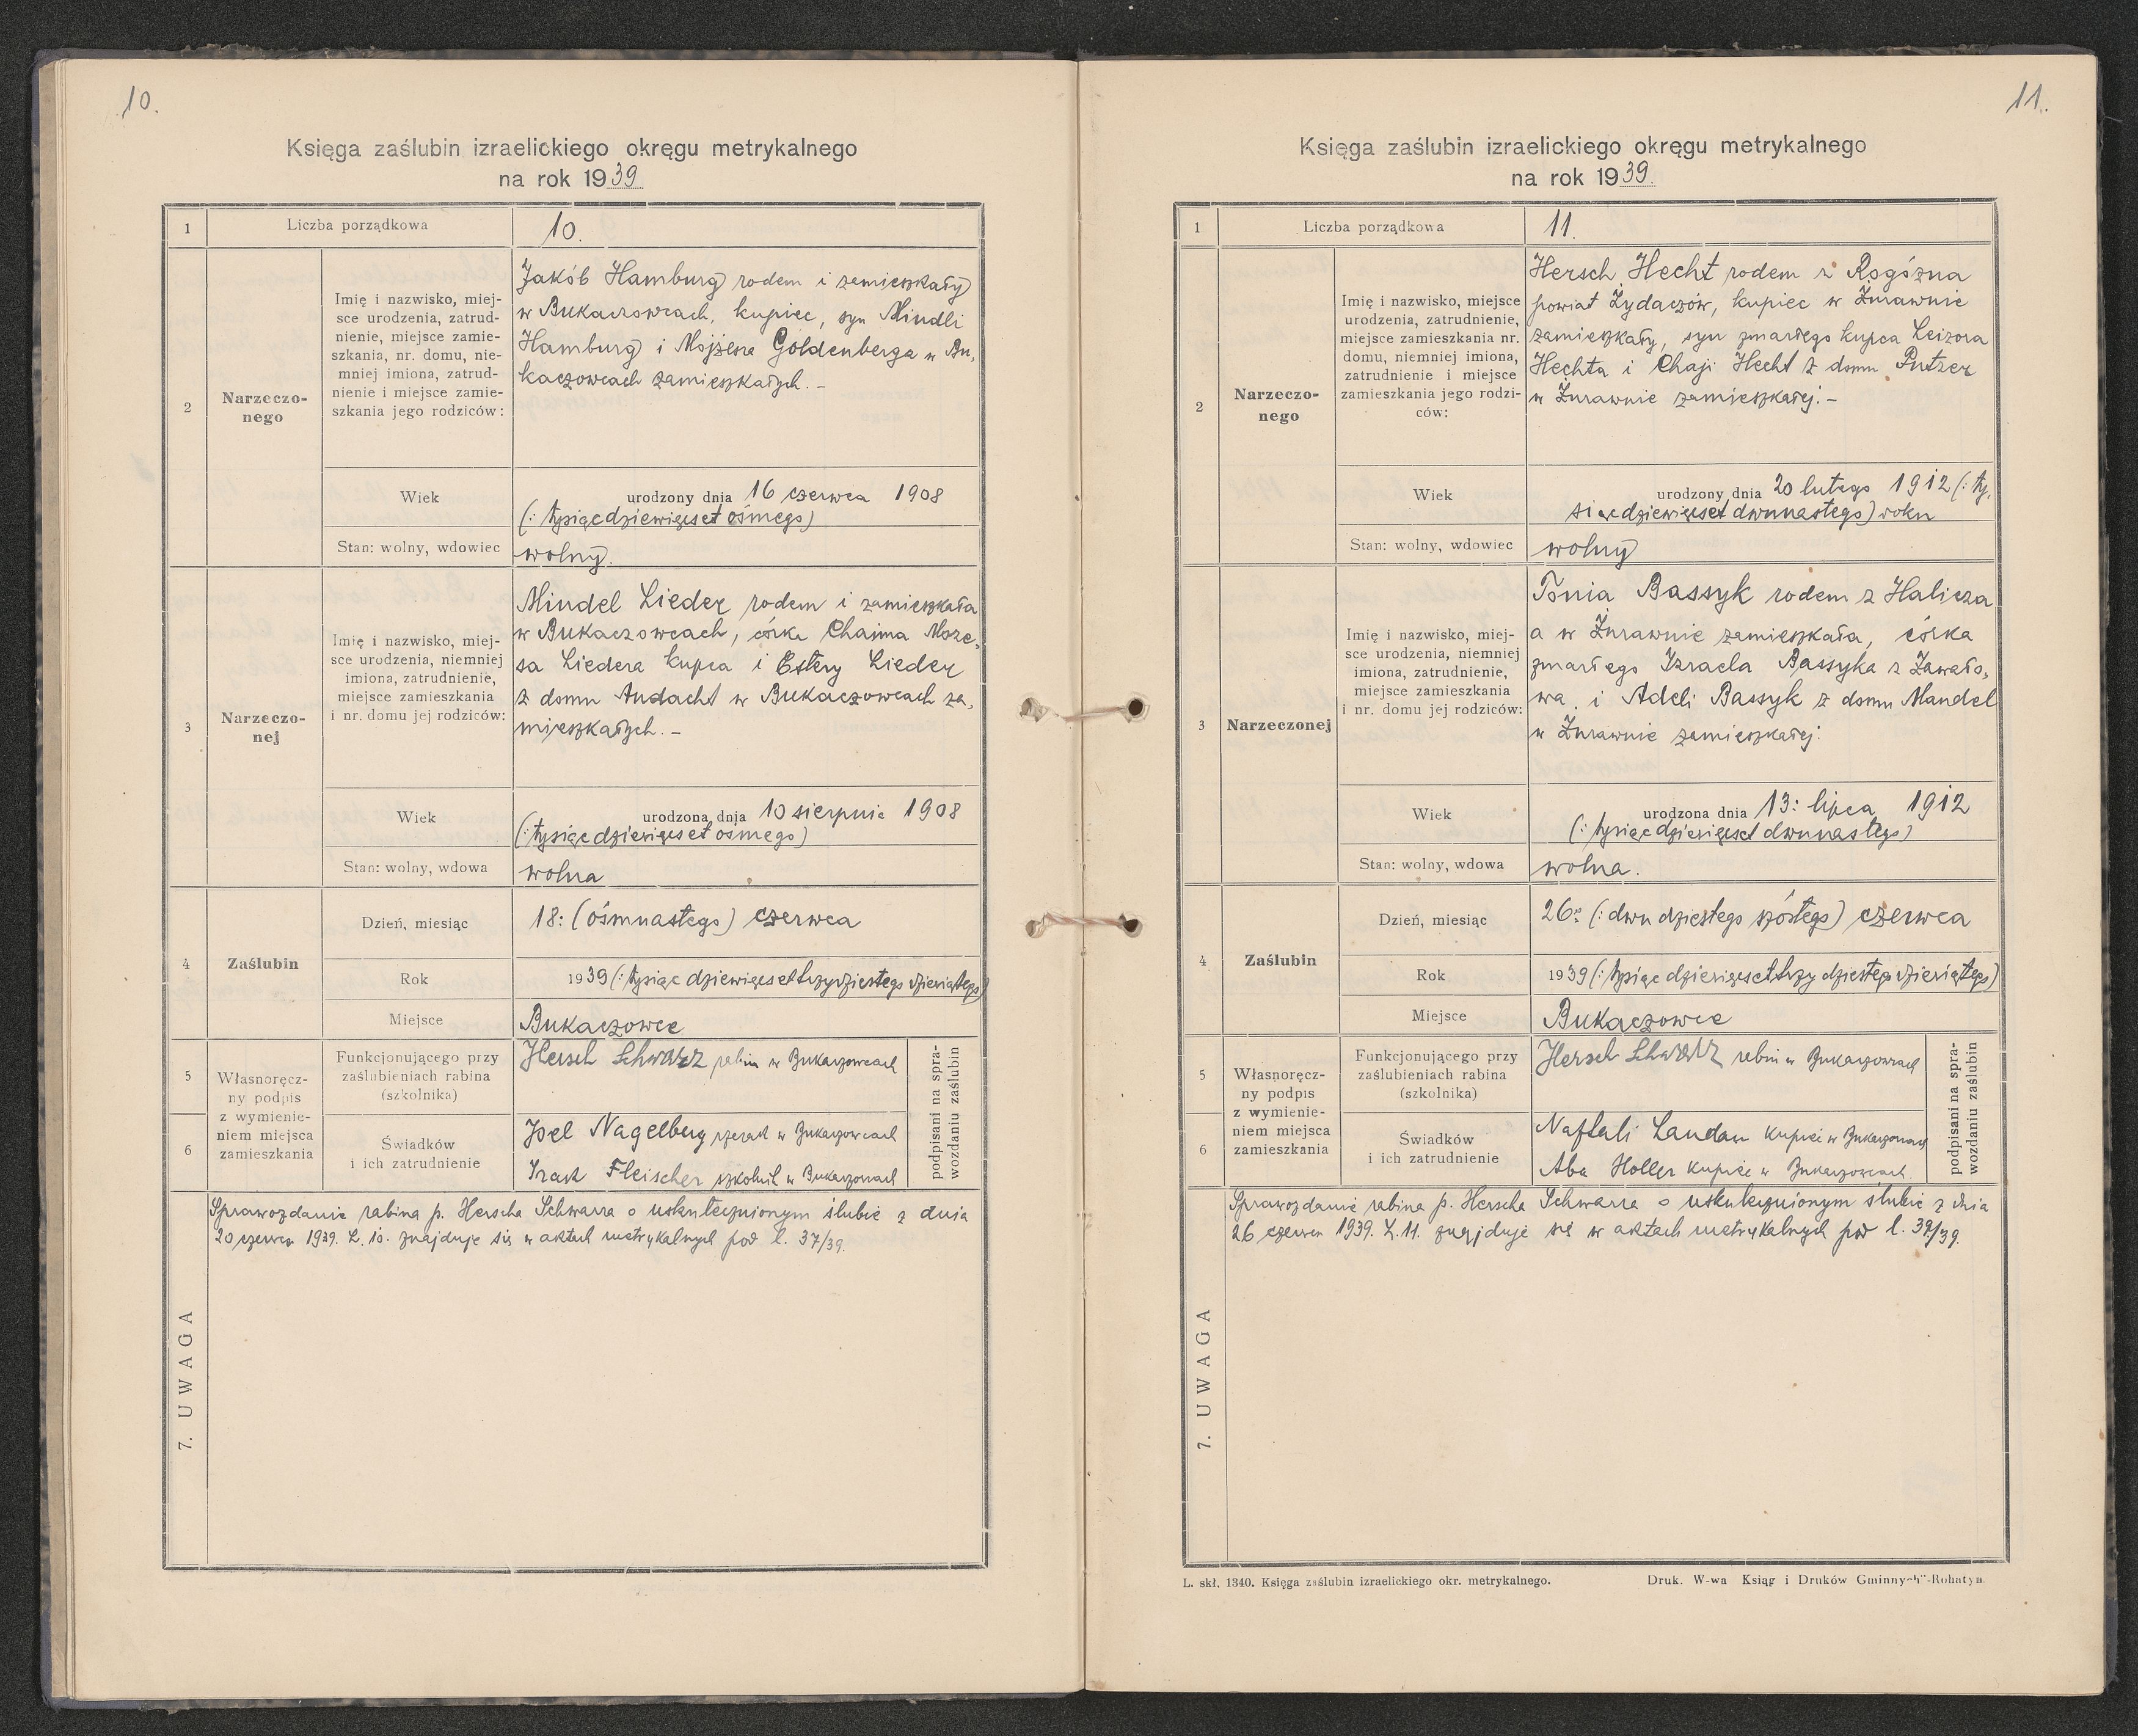 10.
Księga zaślubin izraelickiego okręgu metrykalnego
na rok 1939
1
Liczba porządkowa
10.
2
Narzeczo-
nego
Imię i nazwisko, miej-
sce urodzenia, zatrud-
nienie, miejsce zamie-
szkania, nr. domu, nie-
mniej imiona, zatrud-
nienie i miejsce zamie-
szkania jego rodziców:
Jakób Hamburg rodem i zamieszkały
w Bukaczowcach, kupiec, syn Mindli
Hamburg i Mojżesza Goldenberga w Bu-
kaczowcach zamieszkałych. –
Wiek
urodzony dnia 16 czerwca 1908
(: tysiąc dziewięćset ósmego)
Stan: wolny, wdowiec
wolny.
3
Narzeczo-
nej
Imię i nazwisko, miej-
sce urodzenia, niemniej
imiona, zatrudnienie,
miejsce zamieszkania
i nr. domu jej rodziców:
Mindel Lieder rodem i zamieszkała
w Bukaczowcach, córka Chaima Moze-
sa Liedera kupca i Estery Lieder
z domu Andacht w Bukaczowcach za-
mieszkałych. –
Wiek
urodzona dnia 10 sierpnia 1908
(: tysiąc dziewięćset ósmego)
Stan: wolny, wdowa
wolna
4
Zaślubin
Dzień, miesiąc
18: (ośmnastego) czerwca
Rok
1939 (: tysiąc dziewięćset trzydziestego dziewiątego)
Miejsce
Bukaczowce
5
6
Własnoręcz-
ny podpis
z wymienie-
niem miejsca
zamieszkania
Funkcjonującego przy
zaślubieniach rabina
(szkolnika)
Hersch Schwarz rabin w Bukaczowcach
Świadków
i ich zatrudnienie
Joel Nagelberg rzezak w Bukaczowcach
Izak Fleischer szkolnik w Bukaczowcach
podpisani na spra-
wozdaniu zaślubin
7. UWAGA
Sprawozdanie rabina p. Herscha Schwarza o uskutecznionym ślubie z dnia
20 czerwca 1939. L. 10. znajduje się w aktach metrykalnych pod l. 37/39.
11.
Księga zaślubin izraelickiego okręgu metrykalnego
na rok 1939.
1
Liczba porządkowa
11.
2
Narzeczo-
nego
Imię i nazwisko, miejsce
urodzenia, zatrudnienie,
miejsce zamieszkania nr.
domu, niemniej imiona,
zatrudnienie i miejsce
zamieszkania jego rodzi-
ców:
Hersch Hecht rodem z Rogózna
powiat Żydaczów, kupiec w Żurawnie
zamieszkały, syn zmarłego kupca Leizora
Hechta i Chaji Hecht z domu Putzer
w Żurawnie zamieszkałej. –
Wiek
urodzony dnia 20 lutego 1912 (: ty-
siąc dziewięćset dwunastego) roku
Stan: wolny, wdowiec
wolny
3
Narzeczonej
Imię i nazwisko, miej-
sce urodzenia, niemniej
imiona, zatrudnienie,
miejsce zamieszkania
i nr. domu jej rodziców:
Tonia Bassyk rodem z Halicza
a w Żurawnie zamieszkała, córka
zmarłego Izraela Bassyka z Zawało-
wa i Adeli Bassyk z domu Mandel
w Żurawnie zamieszkałej.
Wiek
urodzona dnia 13: lipca 1912
(: tysiąc dziewięćset dwunastego)
Stan: wolny, wdowa
wolna.
4
Zaślubin
Dzień, miesiąc
26: (: dwudziestego szóstego) czerwca
Rok
1939 (: tysiąc dziewięćset trzydziestego dziewiątego)
Miejsce
Bukaczowce
5
6
Własnoręcz-
ny podpis
z wymienie-
niem miejsca
zamieszkania
Funkcjonującego przy
zaślubieniach rabina
(szkolnika)
Hersch Schwarz rabin w Bukaczowcach
Świadków
i ich zatrudnienie
Naftali Landau kupiec w Bukaczowcach
Aba Holler kupiec w Bukaczowcach.
podpisani na spra-
wozdaniu zaślubin
7. UWAGA
Sprawozdanie rabina p. Herscha Schwarza o uskutecznionym ślubie z dnia
26 czerwca 1939. L. 11. znajduje się w aktach metrykalnych pod l. 39/39.
L. skł. 1340. Księga zaślubin izraelickiego okr. metrykalnego.
Druk. W-wa Ksiąg i Druków Gminnych"-Rohatyn.